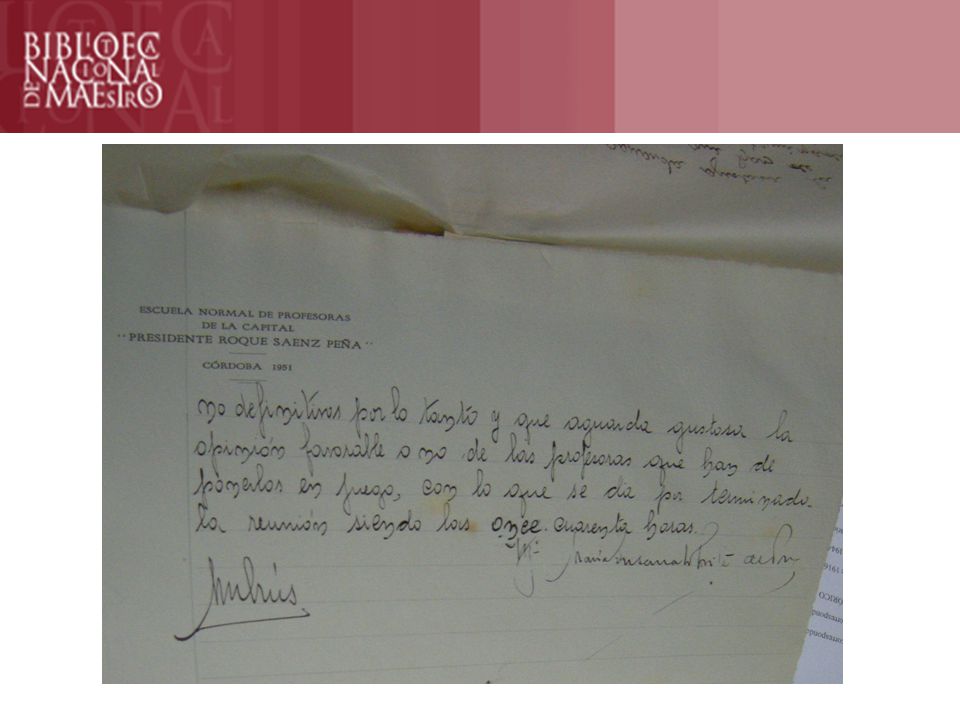 BIBLIOTECA
NACIONAL
DE MAESTROS
ESCUELA NORMAL DE PROFESORAS
DE LA CAPITAL
"PRESIDENTE ROQUE SAENZ PEÑA"
CÓRDOBA 1951
no definitivos por lo tanto y que aguarda gustosa la
opinión favorable o no de las profesoras que han de
ponerlos en juego, con lo que se dia por terminada
la reunión siendo las once cuarenta horas.